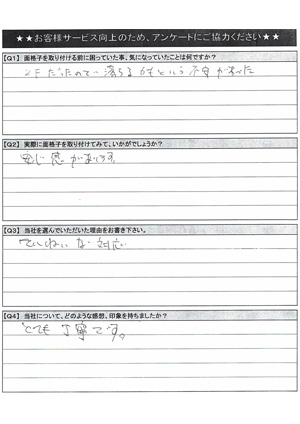 ★★お客様サービス向上のため、アンケートにご協力ください★★
【Q1】 面格子を取り付ける前に困っていた事、気になっていたことは何ですか?
2Fだったので落ちるかもという不安があった
【Q2】 実際に面格子を取り付けてみて、いかがでしょうか?
安心感があります。
【Q3】 当社を選んでいただいた理由をお書き下さい。
ていねいな対応
【Q4】 当社について、どのような感想、印象を持ちましたか?
とても丁寧です。